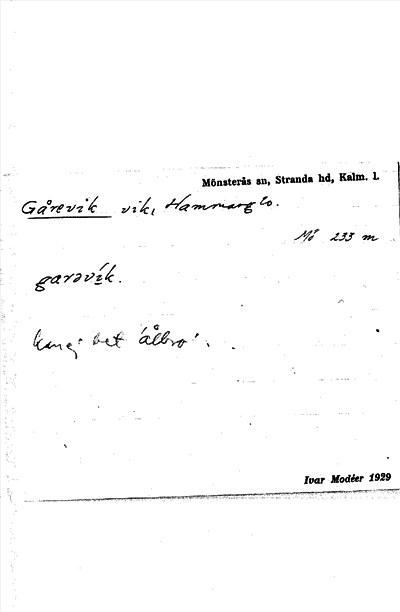 Mönsterås sn, Stranda hd, Kalm. l.
Gårevik vik, Hammarglo.
Mö 233 m
garəvík.
bet 'ålbro'.
Ivar Modéer 1929